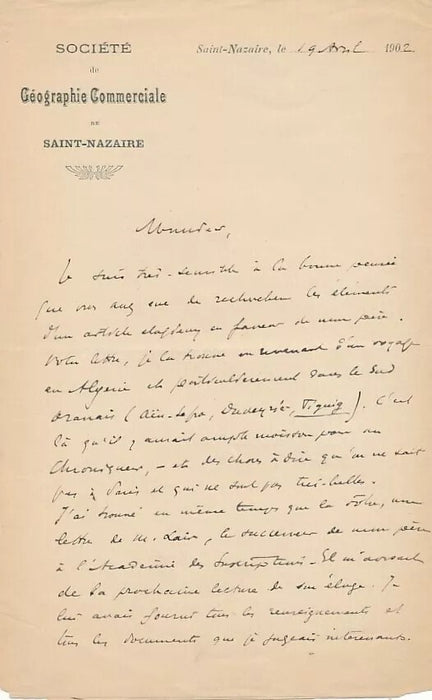 SOCIÉTÉ
de
Géographie Commerciale
DE
SAINT-NAZAIRE
Saint-Nazaire, le 19 Avril 1902
Monsieur,
Je suis très-sensible à la bonne pensée
que vous avez eue de rechercher les éléments
d'un article élogieux en faveur de mon père.
Votre lettre, je la trouve en revenant d'un voyage
en Algérie et particulièrement dans le Sud
Oranais (Aïn-Sefra, Duveyrier, Figuig). C'est
là qu'il y aurait ample moisson pour un
Chroniqueur, – et des choses à dire qu'on ne sait
pas à Paris et qui ne sont pas très-belles.
J'ai trouvé en même temps que la vôtre, une
lettre de M. Lair, le successeur de mon père
à l'Académie des Inscriptions. Il m'avisait
de la prochaine lecture de son éloge. Je
lui avais fourni tous les renseignements et
tous les documents que je jugeais intéressants.